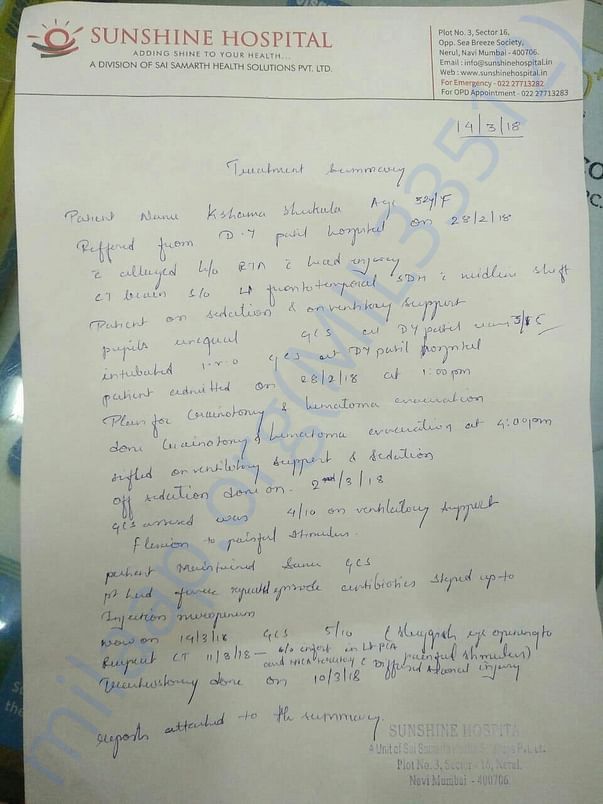 SUNSHINE HOSPITAL
ADDING SHINE TO YOUR HEALTH...
A DIVISION OF SAI SAMARTH HEALTH SOLUTIONS PVT. LTD.
Plot No. 3, Sector 16,
Opp. Sea Breeze Society,
Nerul, Navi Mumbai - 400706.
Email : info@sunshinehospital.in
Web : www.sunshinehospital.in
For Emergency - 022 27713282
For OPD Appointment - 022 27713283
14/3/18
Treatment Summary
Patient Name Kshama Shukula Age 32y/F
Reffered from D.Y patil hospital on 28/2/18
c alleged h/o RTA c head injury
CT brain s/o frontotemporal SDH c midline shift
Patient on sedation & on ventilatory support
pupils unequal GCS at DY patil was
intubated GCS at DY patil hospital
patient admitted on 28/2/18 at 1:00pm
Plan for craniotomy & hematoma evacuation
done craniotomy & hematoma evacuation at 4:00pm
shifted on ventilatory support & sedation
off sedation done on 2nd/3/18
GCS assessed was 4/10 on ventilatory support
flexion to painful stimulus.
patient maintained same GCS
pt had fever repeated episode antibiotics stepped up to
Injection meropenem
now on 14/3/18 GCS 5/10 (sluggish eye opening to
painful stimulus)
Repeat CT 11/3/18 - s/o infarct in Lt PCA
and MCA territory c Diffused axonal injury
Tracheostomy done on 10/3/18
reports attached to the summary.
SUNSHINE HOSPITA
A Unit of Sai Samarth Health
Plot No. 3, Sector - 16, Nerul.
Navi Mumbai - 400706.
milaap.org(MIL33512)